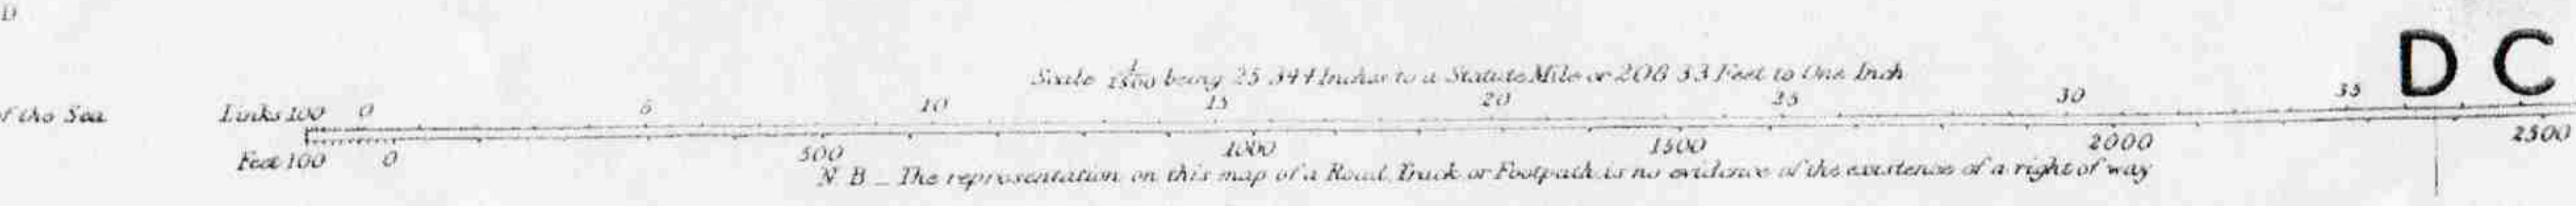 D
Scale 1/2500 being 25 344 Inches to a Statute Mile or 208 33 Feet to One Inch
D C
of the Sea
Links 100 0 5 10 15 20 25 30 35
Feet 100 0 500 1000 1500 2000 2500
N B _ The representation on this map of a Road, Track or Footpath is no evidence of the existence of a right of way